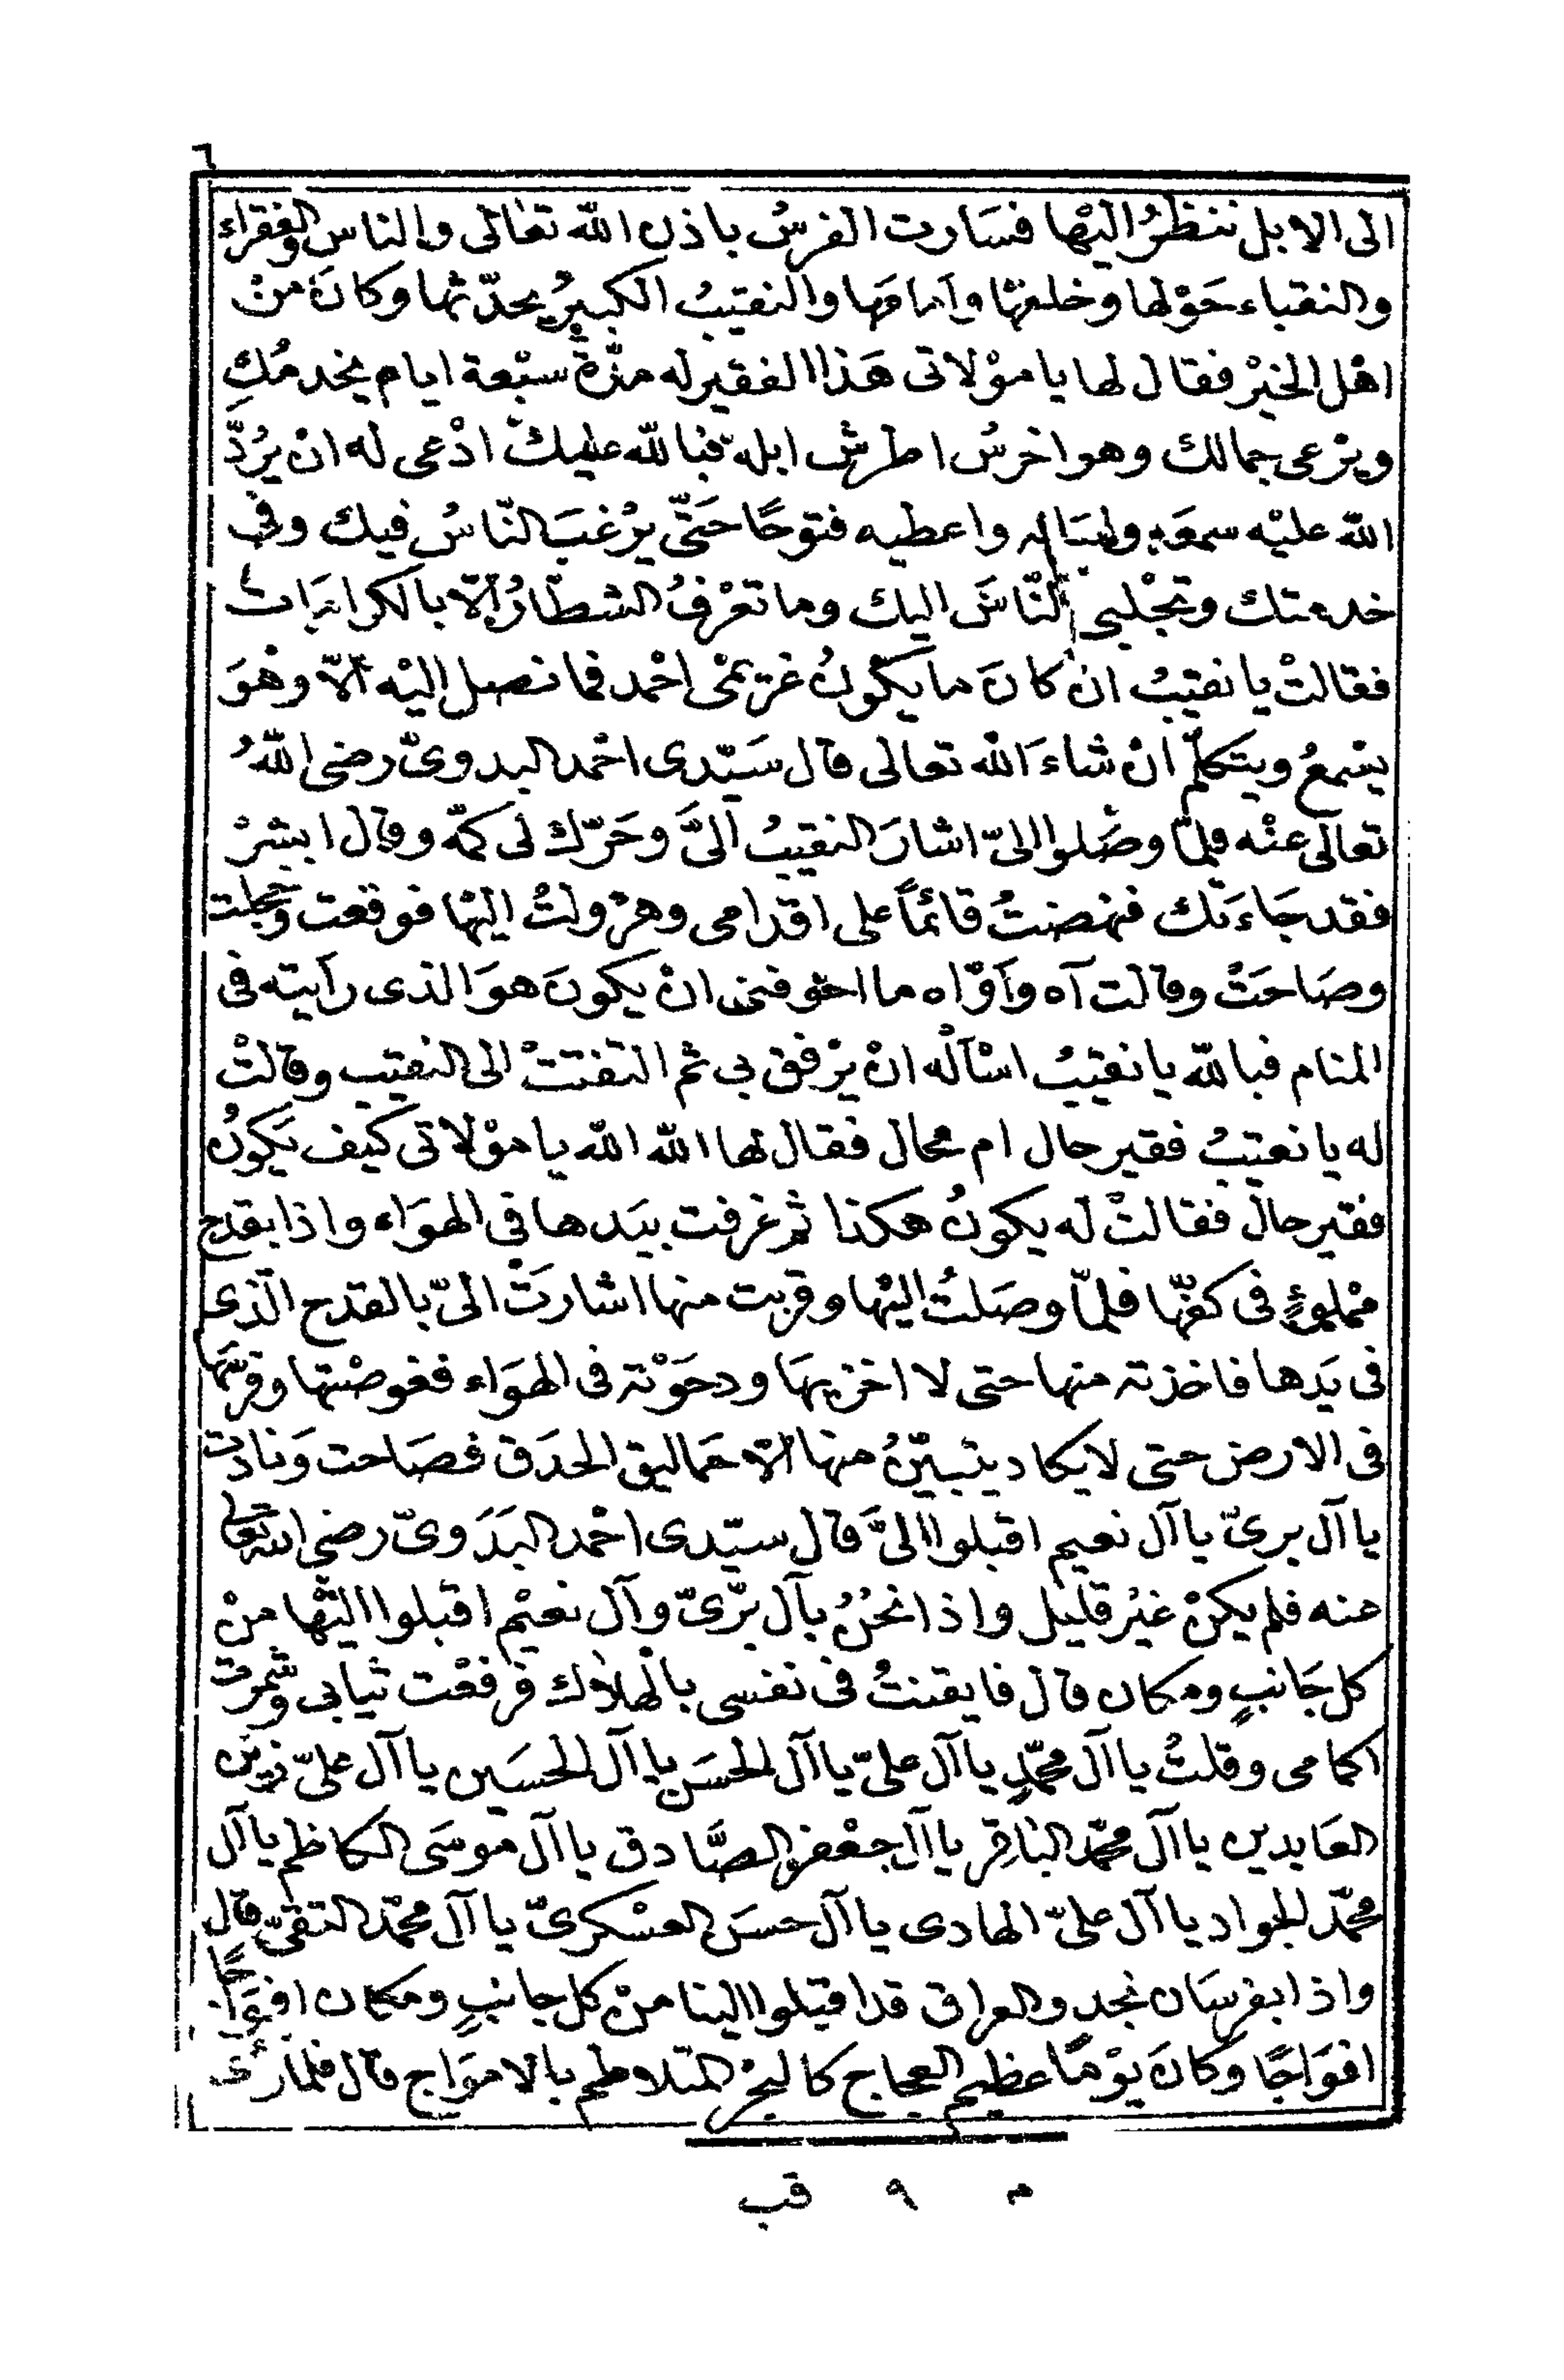 ٦
الى الابل ننظرُ اليْها فسَارت الفرسُ باذن الله تعالى والناس والفقراء
والنقباء حَوْلها وخلفهَا وأمامَها والنقيبُ الكبيرُ يحدّثها وكانَ منْ
اهْل الخيْر فقال لها يا موْلاتى هَذا الفقير له مدّةُ سبْعة ايام يخدمُكِ
ويرْعى جمالك وهو اخرسُ اطرش ابله فبالله عليك ادْعى له انْ يرُدَّ
الله عليْه سمعَه ولسَانه واعطيه فتوحًا حَتّى يرْغبَ النّاسُ فيك وفى
خدمتك وتجْلبى النّاسَ اليك وما تعْرفُ الشطّارُ الّا بالكرامَات
فقالتْ يا نقيبُ انْ كانَ ما يكُونُ غريمْى احْمد فما نصل اليْه الّا وهُوَ
يسْمعُ ويتكلّم انْ شاءَ الله تعالى قال سَيّدى احْمد البدوىّ رضى اللهُ
تعالى عنْه فلمّا وصَلوا الىّ اشارَ النقيبُ الىَّ وحَرّك لى كمّه وقال ابشرْ
فقد جَاءَتك فنهضتُ قائماً على اقدامى وهرْولتُ اليْها فوقعت وخجلت
وصَاحَتْ وقالت آه وأوّاه ما اخوفنى انْ يكونَ هوَ الذى رأيته فى
المنام فبالله يا نقيبُ اسْألْه انْ يرْفق بى ثم التفتتْ الى النقيب وقالتْ
له يا نقيبُ فقير حال ام محال فقال لها الله الله يا موْلاتى كيف يَكونُ
فقير حال فقالتْ له يكونُ هكذا ثم غرفت بيَدها فى الهوَاء واذا بقدح
ممْلوءٍ فى كفّها فلمّا وصَلتُ اليْها وقربت منها اشارَتْ الىّ بالقدح الّذى
فى يَدها فاخذته منها حتى لا اخزيهَا ودحَوْته فى الهوَاء فغوصْتها وفرسَها
فى الارض حتى لا يكاد يتبيّنُ منها الّا حمَاليق الحدَق فصَاحت وَنادت
يا آل برىّ يا آل نعيم اقبلوا الىَّ قال سيّدى احْمد البَدَوىّ رضى الله تعالى
عنه فلم يكنْ غيْر قليل واذا نحْنُ بآل برّىّ وآل نعيْم اقبلوا اليْها منْ
كل جَانبٍ ومكان قال فايقنتُ فى نفسى بالْهلاك فرفعْت ثيابى وشمرت
اكمامى وقلتُ يا آل محمّدٍ يا آل علىّ يا آل الحسَن يا آل الحسَين يا آل علىّ زين
العَابدين يا آل محمّد البَاقِر يا آل جعْفر الصَّادق يا آل موسَى الكاظم يا آل
محمّد الجواد يا آل علىّ الهادى يا آل حسَن العسْكرىّ يا آل محمّد التقىّ قال
واذا بفرسَان نجدٍ والعراق قد اقبلوا الينا منْ كل جانبٍ ومكان افوَاجًا
افوَاجًا وكانَ يوْمًا عظيم العجاج كالبحْر المتلاطم بالامْوَاج قال فلما رأى
م ٩ قب